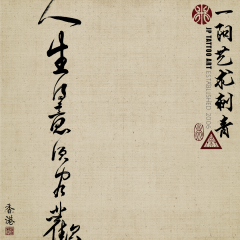 一阿艺术刺青
JP TATTOO ART ESTABLISHED 2005
人生得意须尽欢
香港